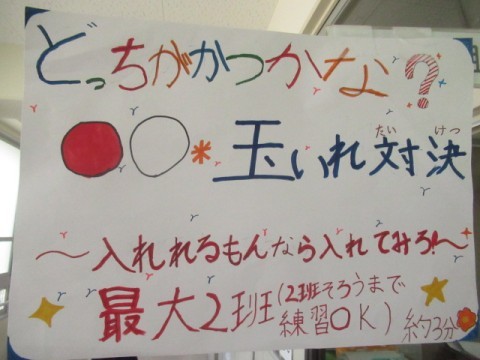 どっちがかつかな?
玉いれ対決
たい けつ
〜入れれるもんなら入れてみろ!〜
最大2班(2班そろうまで
練習OK)約3分